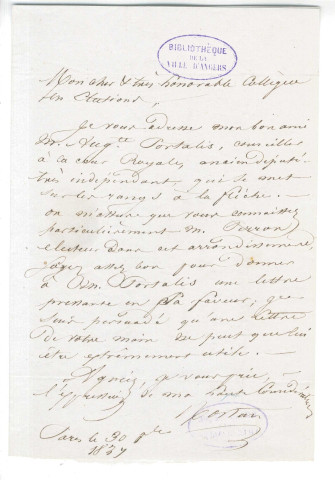 BIBLIOTHÈQUE
DE LA
VILLE D'ANGERS
Mon cher & très honorable Collègue
en élections,
Je vous adresse mon bon ami
M. Aug.te Portalis, conseiller
à la cour Royale, ancien député
très indépendant, qui se met
sur les rangs à la flêche.
on m'assure que vous connaissez
particulièrement M. Perron
électeur dans cet arrondissement,
soyez assez bon pour donner
à M. Portalis une lettre
pressante en sa faveur; je
suis persuadé qu'une lettre
de votre main ne peut que lui
être extrêmement utile.
Agréez, je vous prie,
l'expression de ma haute considération
Paris le 30
1837